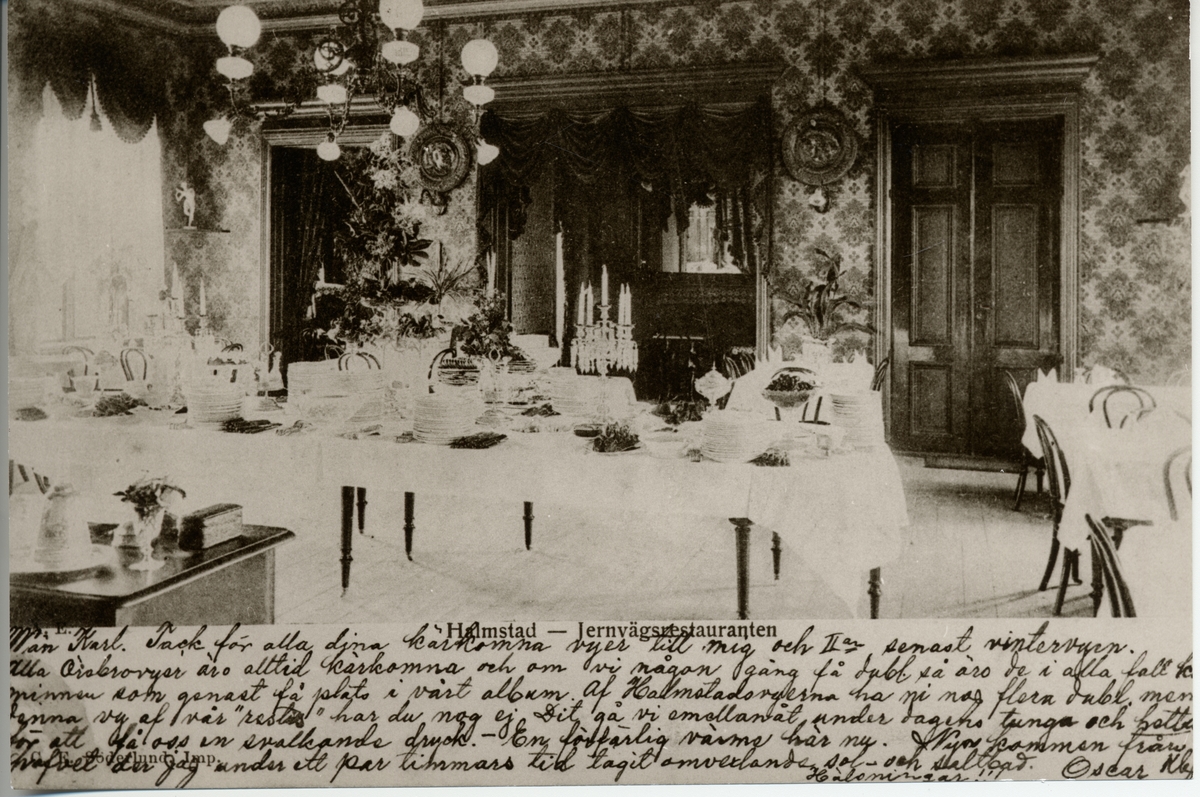 Halmstad — Jernvägsrestauranten
Vän Karl. Tack för alla dina kärkomna vyer till mig och IIan, senast vintervyen.
Alla Örebrovyer äro alltid kärkomna och om vi någon gång få dubl. så äro de i alla fall
minnen som genast få plats i vårt album. Af Halmstadsvyerna ha ni nog flera dubl. men
denna vy af vår "restis" har du nog ej. Dit gå vi emellanåt under dagens tunga och hetta
för att få oss en svalkande dryck. — En förfärlig värme här nu. Nyss kommen från
hafvet der jag under ett par timmars tid tagit omvexlande sol- och saltbad.
Hälsningar!!! Oscar
Söderlund, Imp.